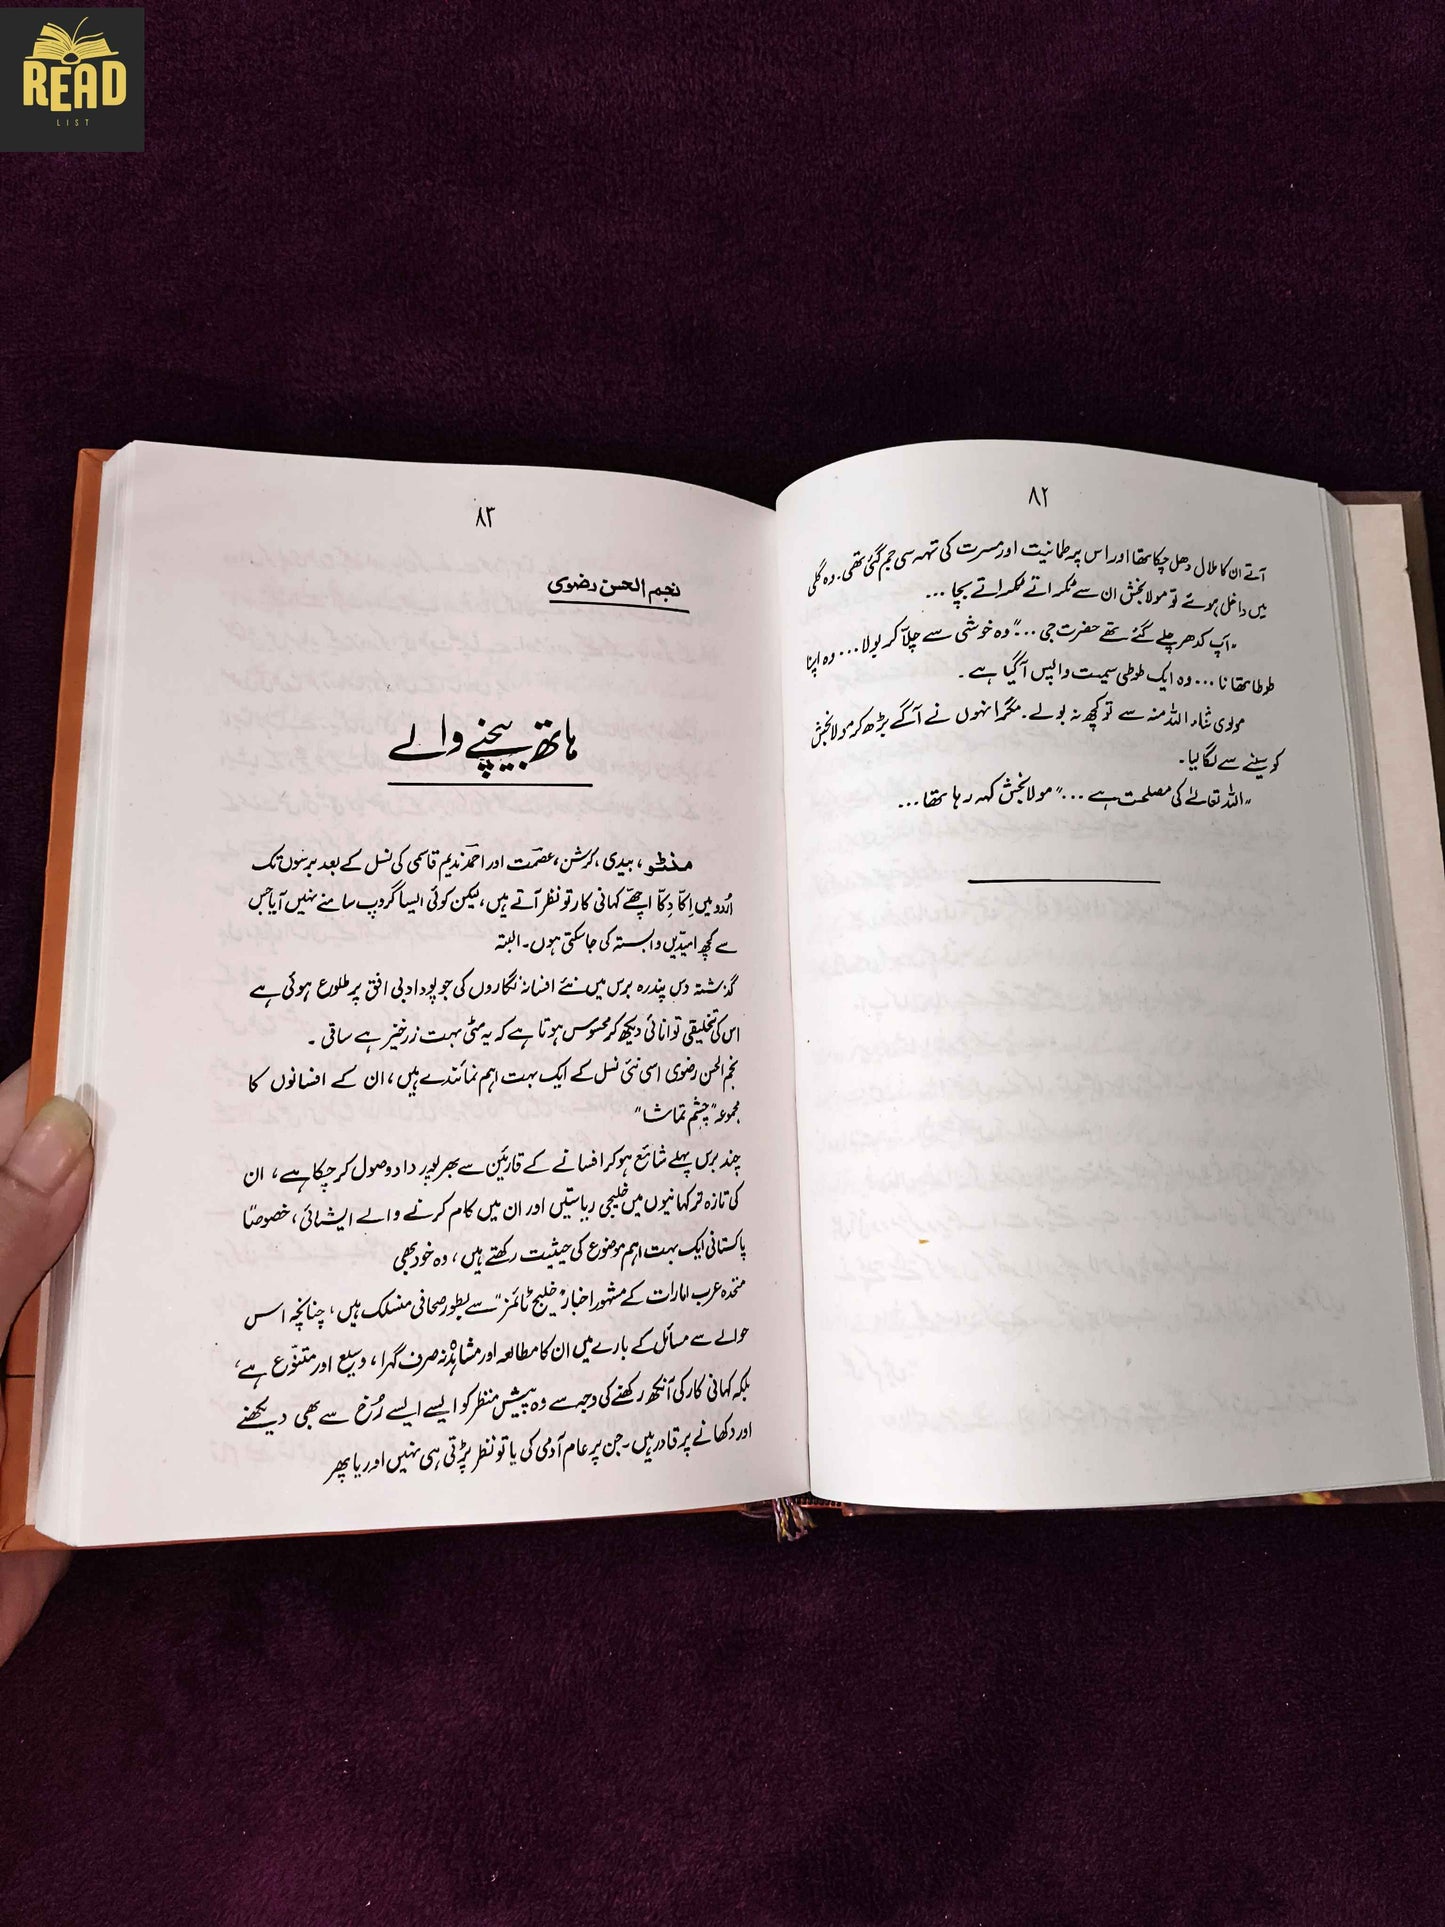 READ
LIST
۸۲
آتے ان کا ملال دھل چکا تھا اور اس پر طمانیت اور مسرت کی تہہ سی جم گئی تھی۔ وہ گلی
میں داخل ہوئے تو مولا بخش ان سے ٹکراتے ٹکراتے بچا ...
"آپ کدھر چلے گئے تھے حضرت جی ..." وہ خوشی سے چلّا کر بولا ... وہ اپنا
طوطا تھا نا ... وہ ایک طوطی سمیت واپس آ گیا ہے۔
مولوی ثناء اللہ منہ سے تو کچھ نہ بولے۔ مگر انہوں نے آگے بڑھ کر مولا بخش
کو سینے سے لگا لیا۔
"اللہ تعالےٰ کی مصلحت ہے ..." مولا بخش کہہ رہا تھا ...
۸۳
نجم الحسن رضوی
ہاتھ بیچنے والے
منٹو، بیدی، کرشن، عصمت اور احمد ندیم قاسمی کی نسل کے بعد برسوں تک
اُردو میں اِکّا دِکّا اچھے کہانی کار تو نظر آتے ہیں، لیکن کوئی ایسا گروپ سامنے نہیں آیا جس
سے کچھ امیدیں وابستہ کی جا سکتی ہوں۔ البتہ
گذشتہ دس پندرہ برس میں نئے افسانہ نگاروں کی جو پود ادبی افق پر طلوع ہوئی ہے
اس کی تخلیقی توانائی دیکھ کر محسوس ہوتا ہے کہ یہ مٹی بہت زرخیز ہے ساقی ۔
نجم الحسن رضوی اسی نئی نسل کے ایک بہت اہم نمائندے ہیں، ان کے افسانوں کا
مجموعہ "چشم تماشا"
چند برس پہلے شائع ہو کر افسانے کے قارئین سے بھرپور داد وصول کر چکا ہے، ان
کی تازہ تر کہانیوں میں خلیجی ریاستیں اور ان میں کام کرنے والے ایشیائی، خصوصاً
پاکستانی ایک بہت اہم موضوع کی حیثیت رکھتے ہیں، وہ خود بھی
متحدہ عرب امارات کے مشہور اخبار "خلیج ٹائمز" سے بطور صحافی منسلک ہیں، چنانچہ اس
حوالے سے مسائل کے بارے میں ان کا مطالعہ اور مشاہدہ نہ صرف گہرا، وسیع اور متنوّع ہے،
بلکہ کہانی کار کی آنکھ رکھنے کی وجہ سے وہ پیش منظر کو ایسے ایسے رُخ سے بھی دیکھنے
اور دکھانے پر قادر ہیں۔ جن پر عام آدمی کی یا تو نظر پڑتی ہی نہیں اور یا پھر